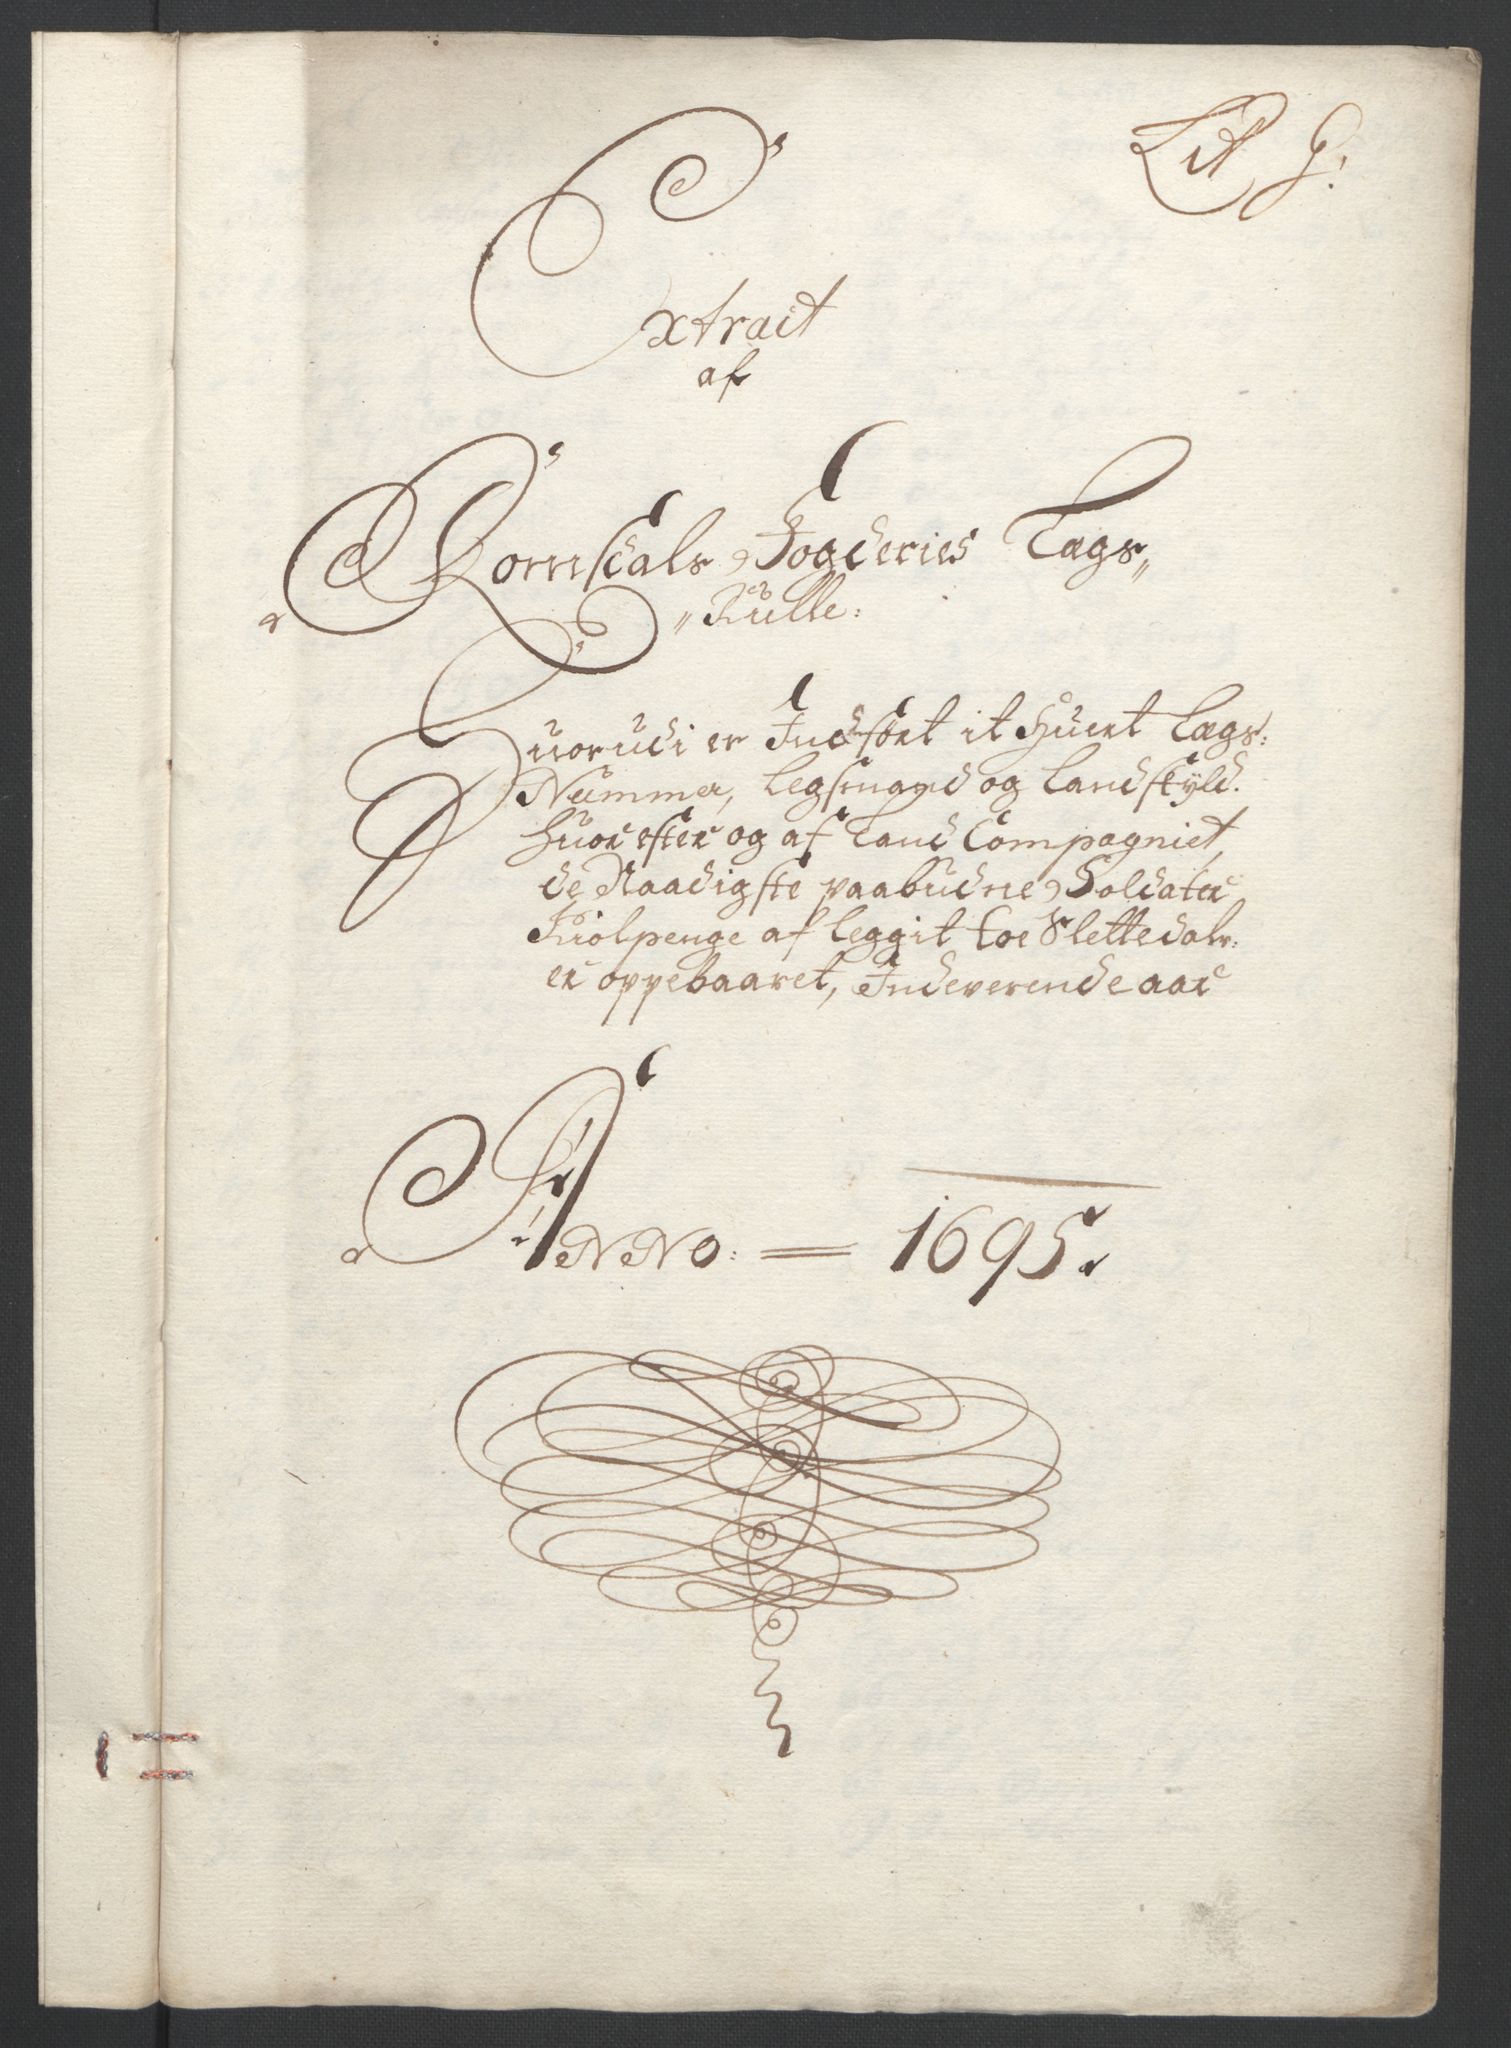 Lit G:
Extract
af
Romsdals Fogderies Lægs"
"Rulle:
Huorudi er Indført it huert Lægs:
Nummer, Legsmand og Landskyld.
huor efter og af Land Compagniet,
de Naadigste paabudne Soldater
Kiolpenge af legget toe Slettedalr:
er oppebaaret, Indeverende aar
ANNO: = 1695.